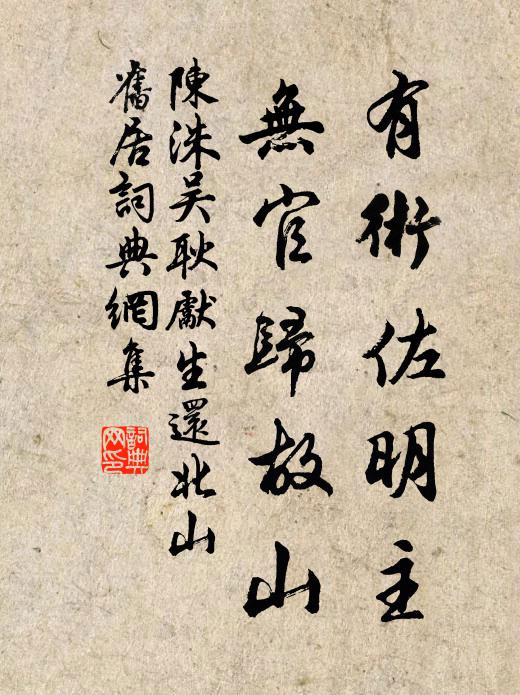 有術佐明主
無官歸故山
陳洙吴耿獻生還北山
舊居詞典網集
詞典網印